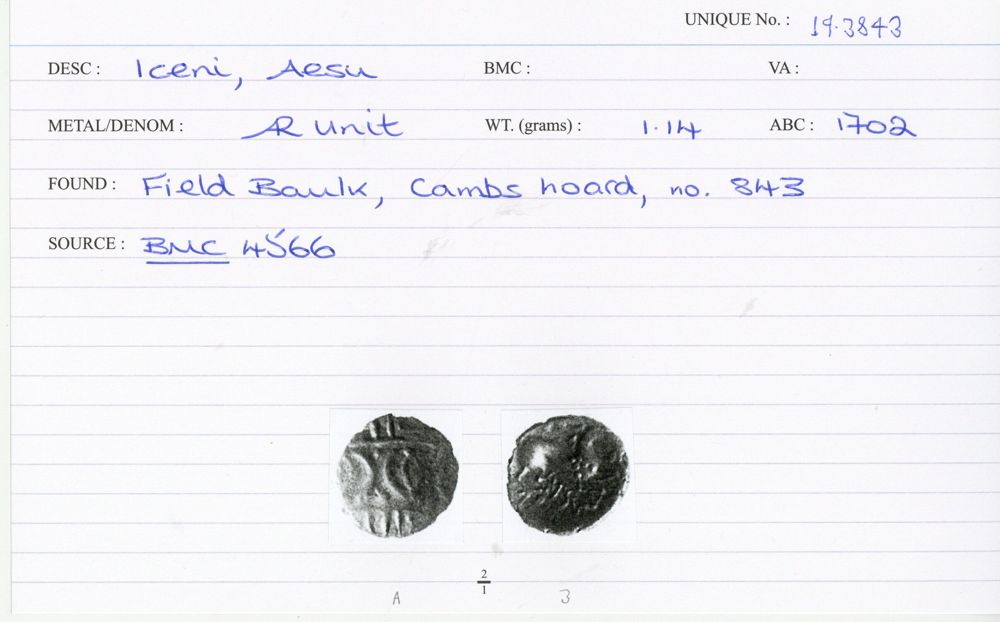 UNIQUE No. : 19.3843
DESC : Iceni, Aesu BMC : VA :
METAL/DENOM : AR unit WT. (grams) : 1.14 ABC : 1702
FOUND : Field Baulk, Cambs hoard, no. 843
SOURCE : BMC 4566
2
1
A 3